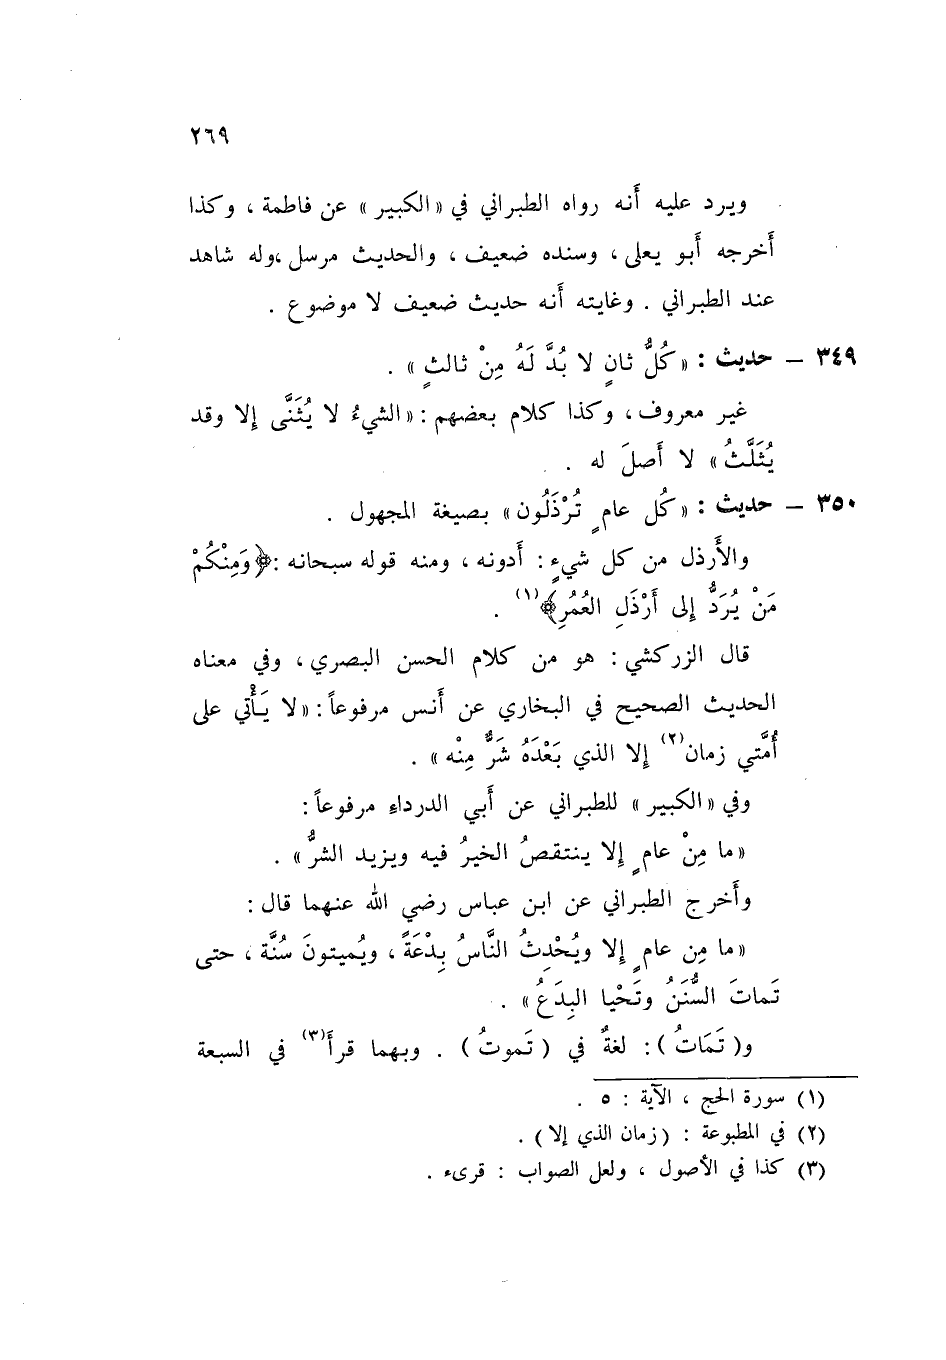 ٢٦٩
ويرد عليه أَنه رواه الطبراني في « الكبير » عن فاطمة ، وكذا
أَخرجه أَبو يعلى ، وسنده ضعيف ، والحديث مرسل ،وله شاهد
عند الطبراني . وغايته أَنه حديث ضعيف لا موضوع .
٣٤٩ – حديث : « كُلُّ ثانٍ لا بُدَّ لَهُ مِنْ ثالثٍ » .
غير معروف ، وكذا كلام بعضهم : « الشيءُ لا يُثَنَّى إِلا وقد
يُثَلَّثُ » لا أَصلَ له .
٣٥٠ – حديث : « كُل عامٍ تُرْذَلُون » بصيغة المجهول .
والأَرذل من كل شيءٍ : أَدونه ، ومنه قوله سبحانه :﴿وَمِنْكُمْ
مَنْ يُرَدُّ إِلى أَرْذَلِ العُمُرِ﴾(١) .
قال الزركشي : هو من كلام الحسن البصري ، وفي معناه
الحديث الصحيح في البخاري عن أَنس مرفوعاً : « لا يَأْتي على
أُمَّتي زمان(٢) إِلا الذي بَعْدَهُ شَرٌّ مِنْه » .
وفي « الكبير » للطبراني عن أَبي الدرداءِ مرفوعاً :
« ما مِنْ عامٍ إِلا ينتقصُ الخيرُ فيه ويزيد الشرُّ » .
وأَخرج الطبراني عن ابن عباس رضي الله عنهما قال :
« ما مِن عامٍ إِلا ويُحْدِثُ النَّاسُ بِدْعَةً ، ويُميتونَ سُنَّة ، حتى
تَماتَ السُّنَنُ وتَحْيا البِدَعُ » .
و( تَمَاتُ ) : لغةٌ في ( تَموتُ ) . وبهما قرأَ(٣) في السبعة
(١) سورة الحج ، الآية : ٥ .
(٢) في المطبوعة : ( زمان الذي إلا ) .
(٣) كذا في الأصول ، ولعل الصواب : قرىء .